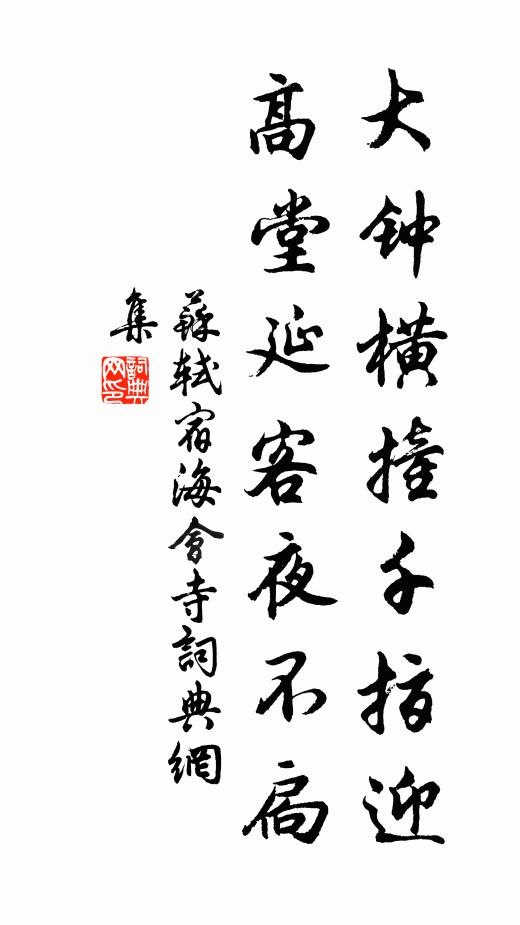 大钟橫撞千指迎
高堂延客夜不扃
蘇軾宿海會寺詞典網
集
詞典
网印